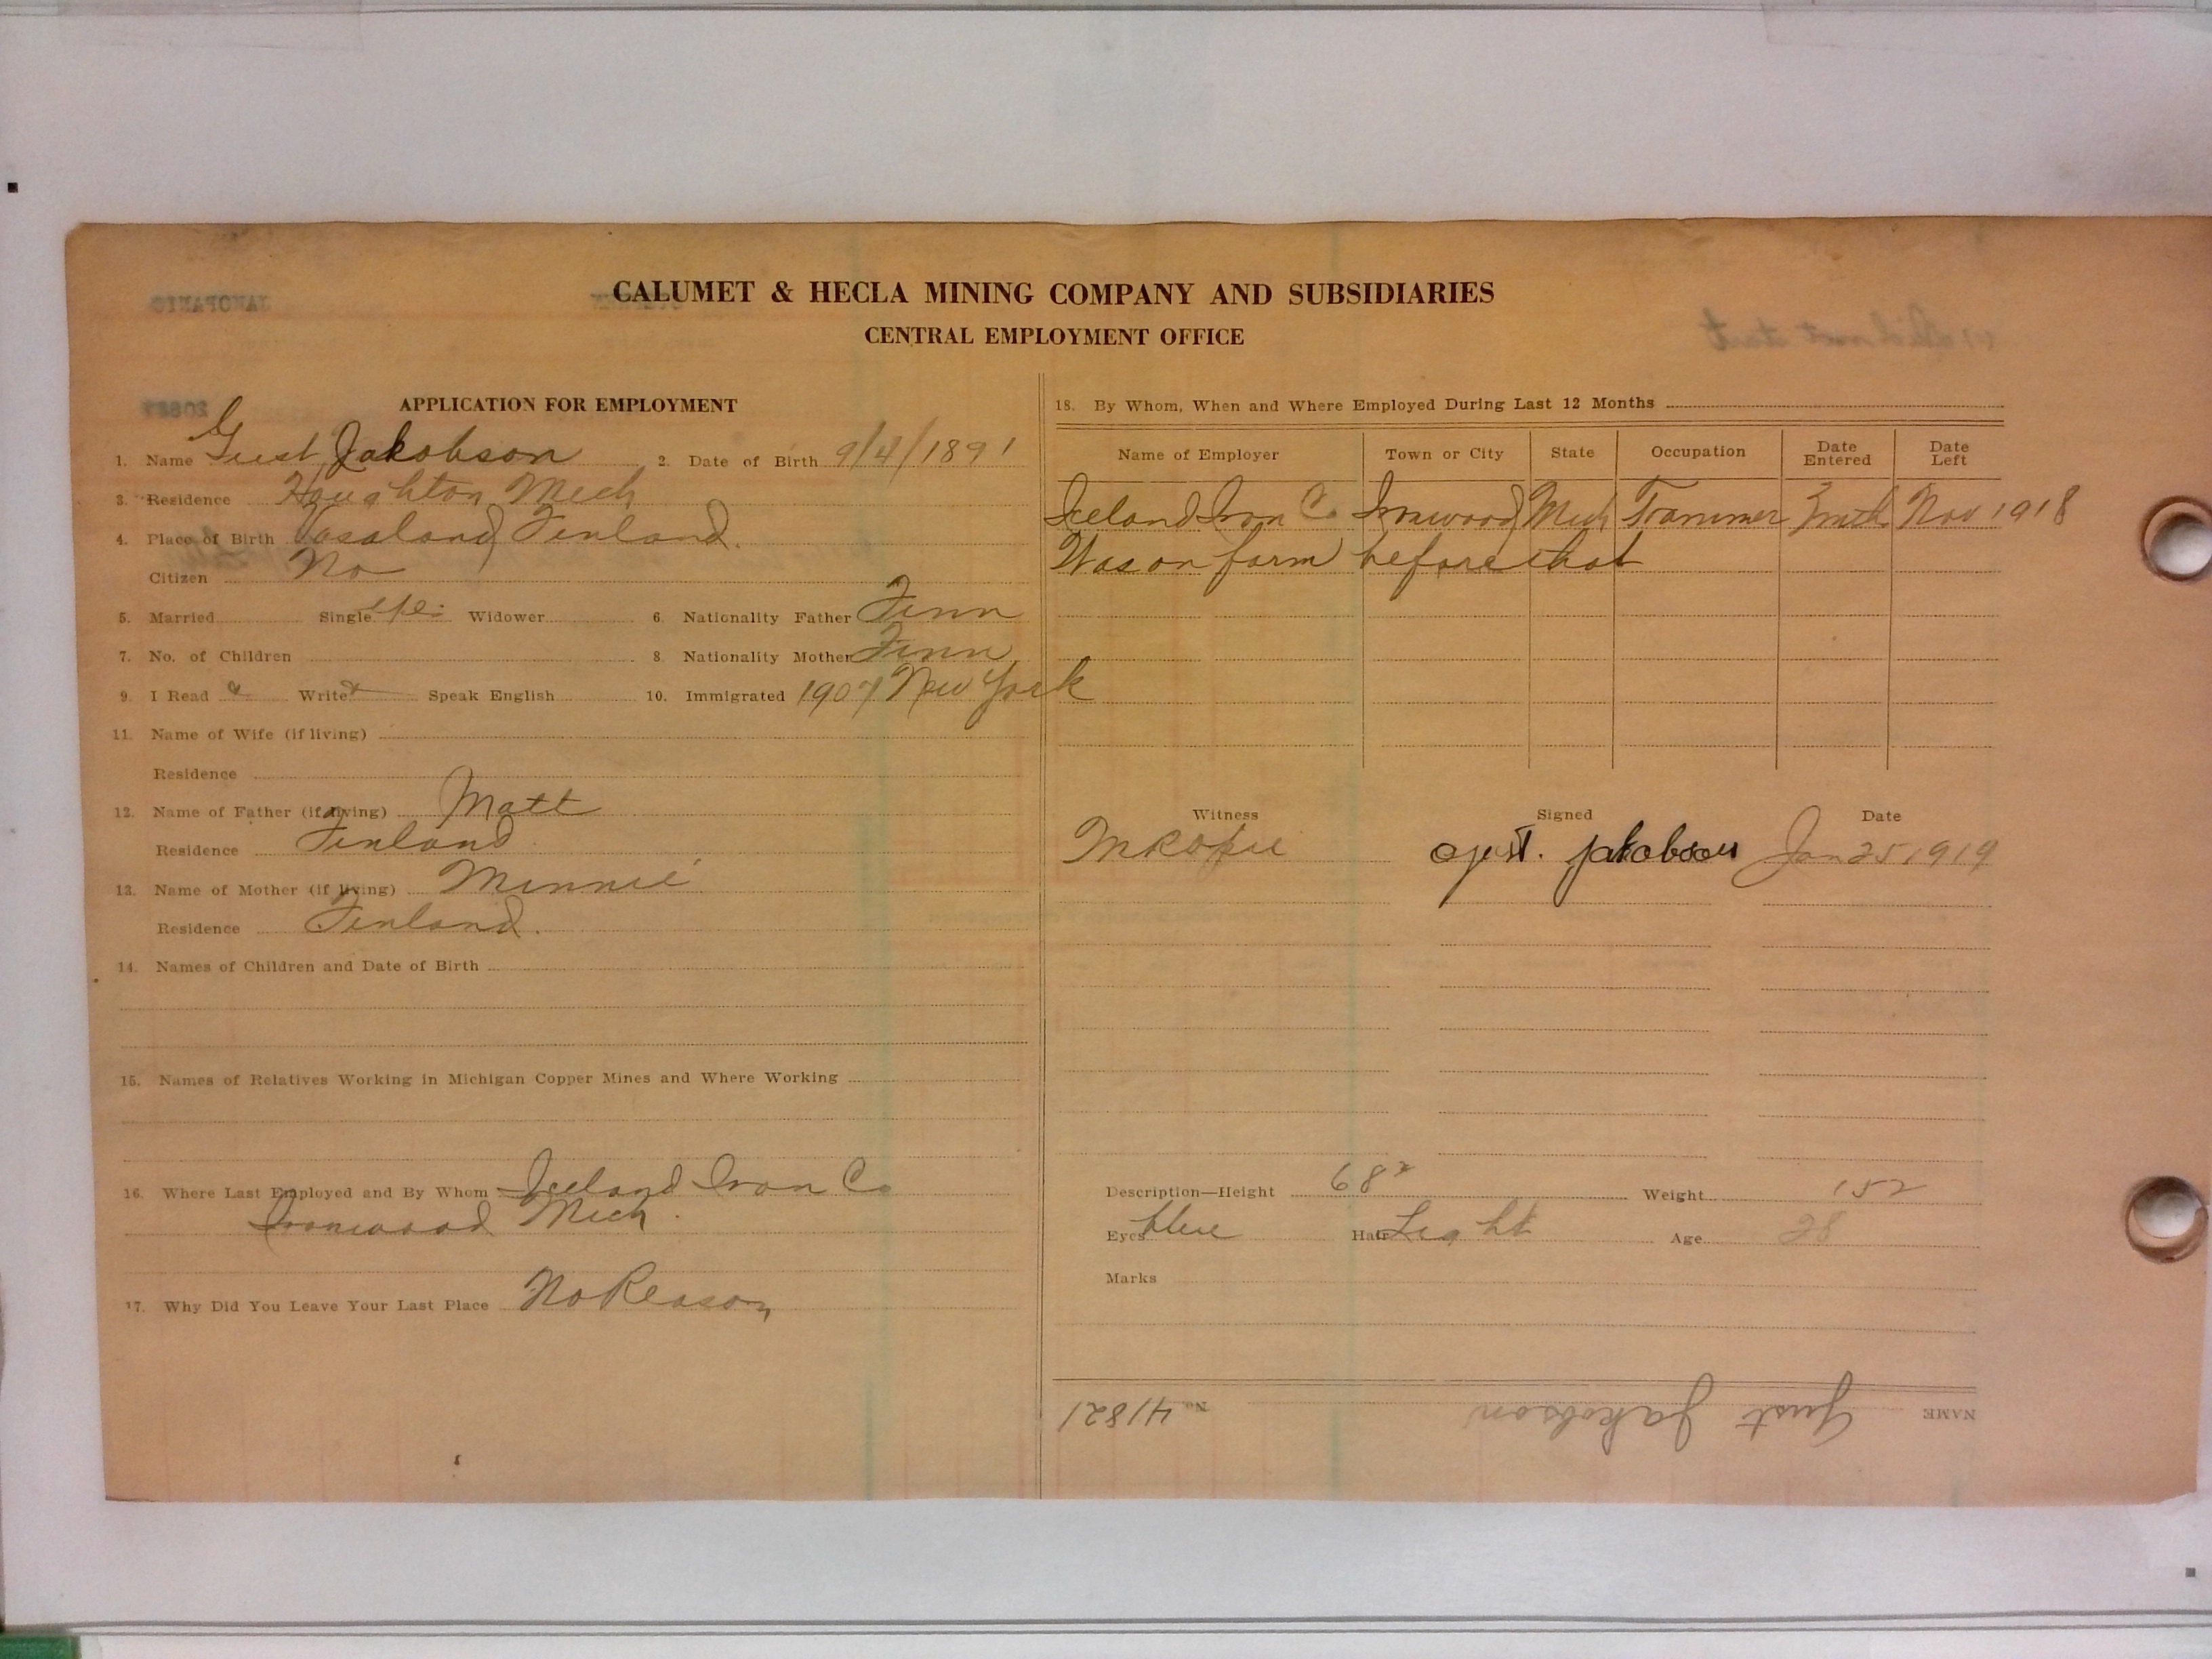 CALUMET & HECLA MINING COMPANY AND SUBSIDIARIES
CENTRAL EMPLOYMENT OFFICE
APPLICATION FOR EMPLOYMENT
1. Name Gust Jakobson 2. Date of Birth 9/4/1891
3. Residence Houghton Mich
4. Place of Birth Vasaland, Finland.
Citizen No
5. Married Single Widower 6. Nationality Father Finn
7. No. of Children 8. Nationality Mother Finn
9. I Read Write Speak English 10. Immigrated 1907 New York
11. Name of Wife (if living)
Residence
12. Name of Father (if living) Matt
Residence Finland
13. Name of Mother (if living) Minnie
Residence Finland.
14. Names of Children and Date of Birth
15. Names of Relatives Working in Michigan Copper Mines and Where Working
16. Where Last Employed and By Whom Iceland Iron Co
Ironwood Mich.
17. Why Did You Leave Your Last Place No Reason
18. By Whom, When and Where Employed During Last 12 Months
Name of Employer Town or City State Occupation Date Entered Date Left
Iceland Iron Co Ironwood Mich Trammer Nov 1918
Was on farm before that
Witness Signed Date
gust. jakobson Jan 25 1919
Description—Height 68² Weight 152
Eyes blue Hair Light Age 28
Marks
NAME Gust Jakobson No. 41821